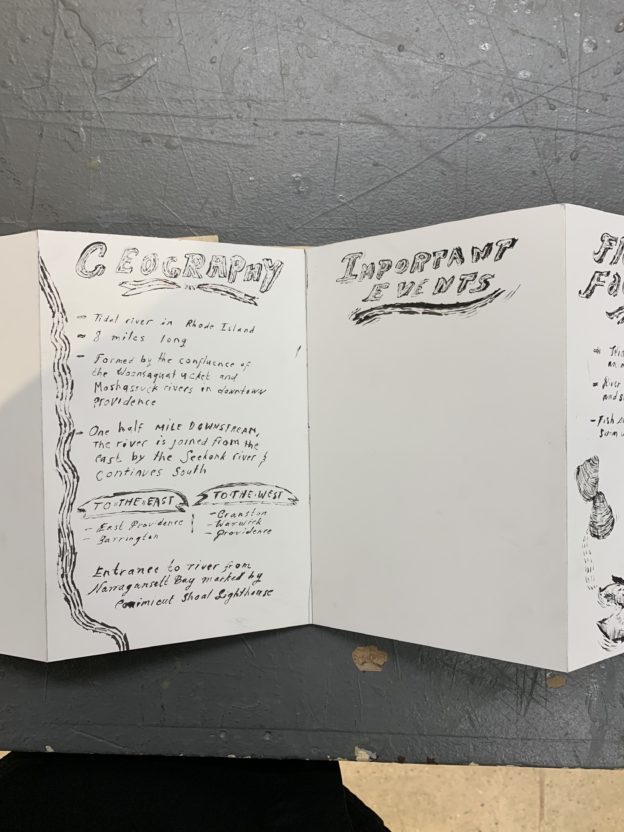 GEOGRAPHY
- Tidal river in Rhode Island
≈ 8 miles long
- Formed by the confluence of
the Woonsaquatucket and
Moshassuck rivers in downtown
Providence
- One half MILE DOWNSTREAM,
The river is joined from the
east by the Seekonk river &
Continues South
TO THE EAST
- East Providence
- Barrington
TO THE WEST
- Cranston
- Warwick
- Providence
Entrance to river from
Narragansett Bay marked by
Conimicut Shoal Lighthouse
IMPORTANT
EVENTS
- River
- Fish